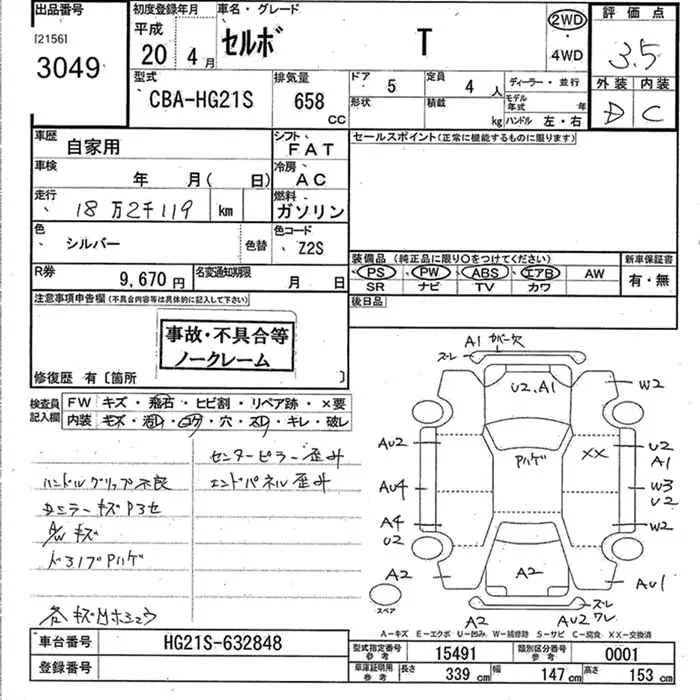 出品番号 初度登録年月 車名・グレード 評価点
[2156] 平成 20 4月 セルボ T 2WD ・ 4WD 3.5
3049
外装 内装
D C
型式 排気量 ドア 5 定員 4人 ディーラー・並行
CBA-HG21S 658 CC 形状 積載 kg モデル年式 年
ハンドル 左・右
車歴 自家用 シフト FAT セールスポイント(正常に機能するものに限ります)
車検 年 月( 日) 冷房 AC
走行 18万2千119 km 燃料 ガソリン
色 シルバー 色替 色コード Z2S
装備品(純正品に限り○をつけてください) 新車保証書
R券 9,670円 名変通知期限 月 日 PS PW ABS エアB AW 有・無
SR ナビ TV カワ
注意事項申告欄(不具合内容等は具体的に記入して下さい) 後日品
事故・不具合等
ノークレーム
修復歴 有〔箇所 〕
検査員記入欄 FW キズ・飛石・ヒビ割・リペア跡・×要
内装 キズ・汚レ・コゲ・穴・スレ・キレ・破レ
センターピラー歪み
ハンドルグリップ不良 エンドパネル歪み
キズ
各キズ
A1 カバー欠
ズレ
U2.A1 W2
AU2 Pハゲ XX U2
A1
AU4 W3
U2
A4 W2
U2
A2 A2 AU1
スペア
A2 AU2 ズレ
ワレ
A-キズ E-エクボ U-凹み W-補修跡 S-サビ C-腐食 XX-交換済
車台番号 HG21S-632848 型式指定番号 参考 15491 類別区分番号 参考 0001
登録番号 車庫証明用 参考 長さ 339 cm 幅 147 cm 高さ 153 cm